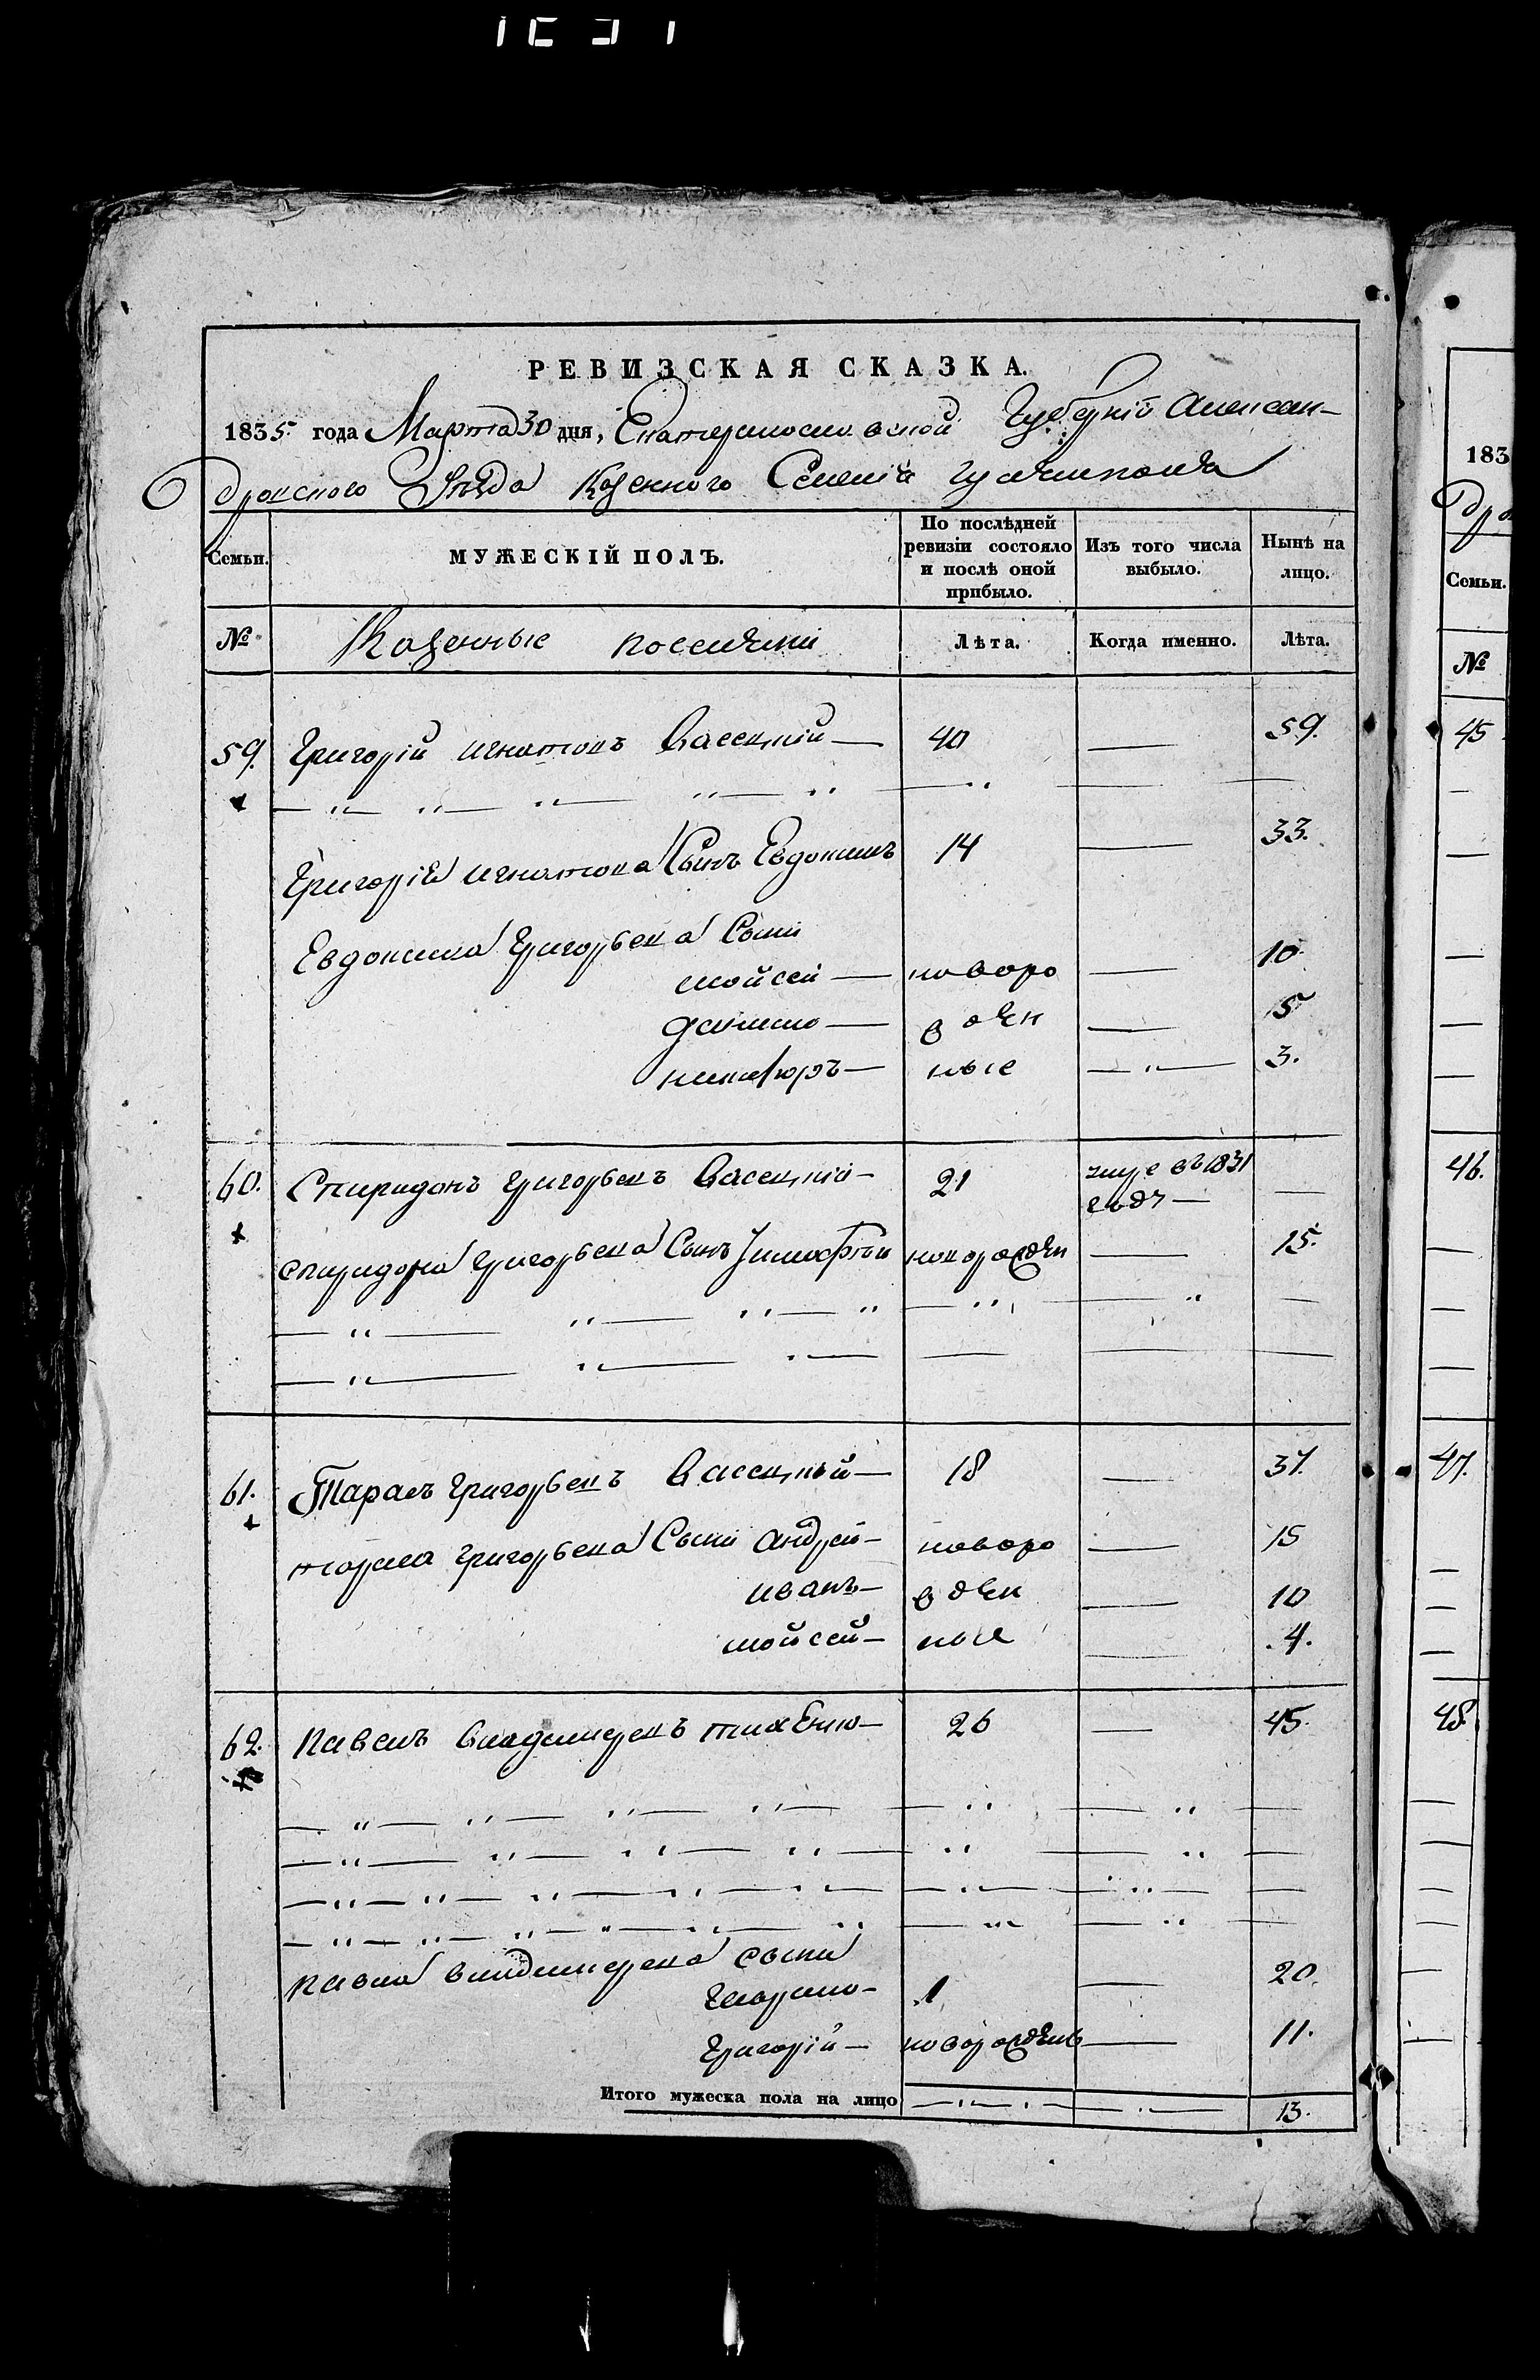 РЕВИЗСКАЯ СКАЗКА.
1835 года Марта 30 дня, Екатеринославской Губерніи Алексан-
дровского Уѣзда Казенного Селенія
Семьи.
МУЖЕСКІЙ ПОЛЪ.
По послѣдней ревизіи состояло и послѣ оной прибыло.
Изъ того числа выбыло.
Нынѣ на лицо.
№
Казенные поселяни
Лѣта.
Когда именно.
Лѣта.
59. Григорій игнатовъ Васецкій — 40 — 59.
Григорія игнатова Сынъ Евдокимъ 14 — 33.
Евдокима Григорьева Сыни
мойсей — новоро — 10
данило — жден — 5
никифоръ — ные — 3.
60. Спиридонъ григорьевъ Васецкій — 21 умре въ 1831
годе —
спиридона григорьева Сынъ Тимофѣй новорожден — 15.
61. Тарасъ григорьевъ Васецкый — 18 — 37.
тараса григорьева Сыни андрей — новоро — 15
иванъ — жден — 10
мойсей — ные — 4.
62. павелъ владимеровъ — 26 — 45.
павла владимерова сыни
герасимо — 1 — 20.
григорій — новорожденъ — 11.
Итого мужеска пола на лицо 13.
183
Дро
Семьи.
№
45
46.
47.
48.